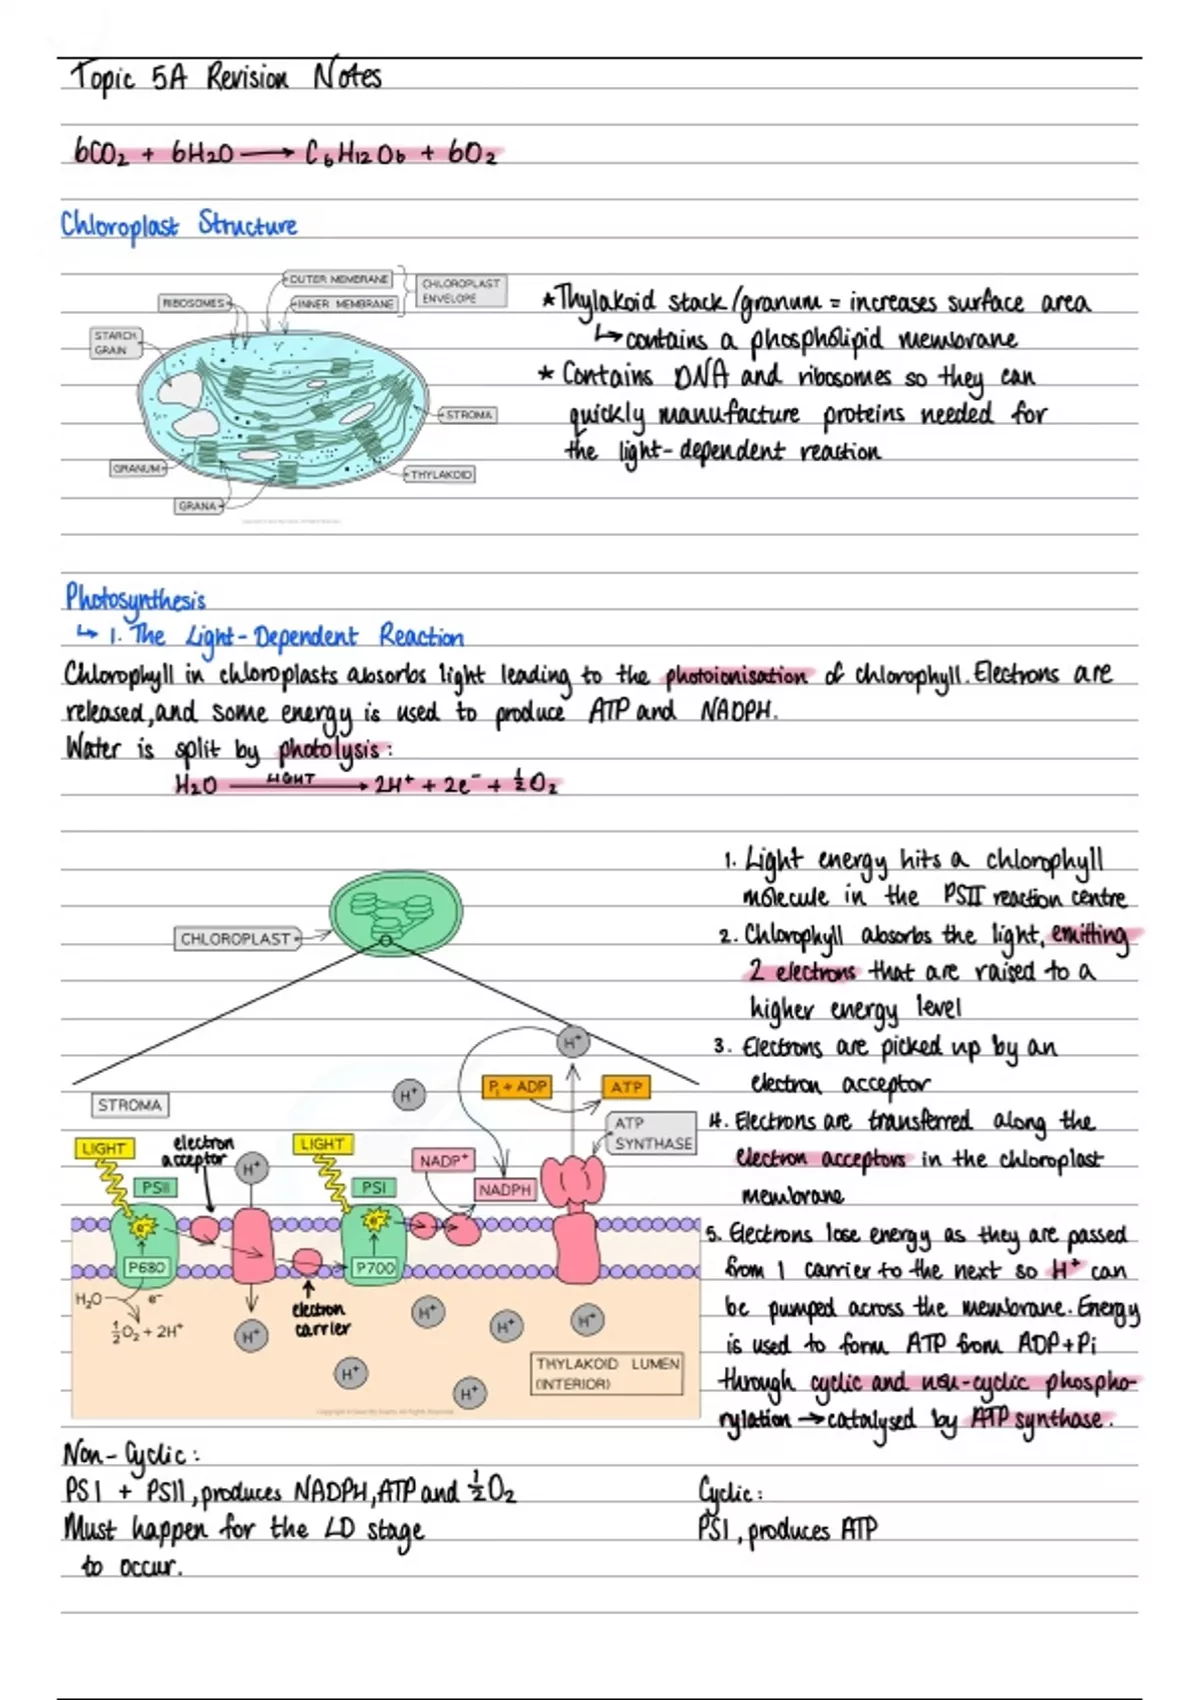 Topic 5A Revision Notes
6CO2 + 6H2O → C6H12O6 + 6O2
Chloroplast Structure
OUTER MEMBRANE
INNER MEMBRANE
CHLOROPLAST
ENVELOPE
RIBOSOMES
STARCH
GRAIN
STROMA
GRANUM
THYLAKOID
GRANA
*Thylakoid stack/granum = increases surface area
↳contains a phospholipid membrane
* Contains DNA and ribosomes so they can
quickly manufacture proteins needed for
the light-dependent reaction
Photosynthesis
↳ 1. The Light-Dependent Reaction
Chlorophyll in chloroplasts absorbs light leading to the photoionisation of chlorophyll. Electrons are
released, and some energy is used to produce ATP and NADPH.
Water is split by photolysis:
LIGHT
H2O → 2H+ + 2e- + ½O2
CHLOROPLAST
H+
H+
Pi + ADP
ATP
STROMA
ATP
SYNTHASE
LIGHT
electron
acceptor
H+
LIGHT
NADP+
NADPH
PSII
PSI
e-
e-
P680
P700
H2O
e-
½O2 + 2H+
H+
electron
carrier
H+
H+
H+
H+
H+
THYLAKOID LUMEN
(INTERIOR)
1. Light energy hits a chlorophyll
molecule in the PSII reaction centre
2. Chlorophyll absorbs the light, emitting
2 electrons that are raised to a
higher energy level
3. Electrons are picked up by an
electron acceptor
4. Electrons are transferred along the
electron acceptors in the chloroplast
membrane
5. Electrons lose energy as they are passed
from 1 carrier to the next so H+ can
be pumped across the membrane. Energy
is used to form ATP from ADP+Pi
through cyclic and non-cyclic phospho-
rylation → catalysed by ATP synthase.
Non-Cyclic:
PSI + PSII, produces NADPH, ATP and ½O2
Must happen for the LD stage
to occur.
Cyclic:
PSI, produces ATP